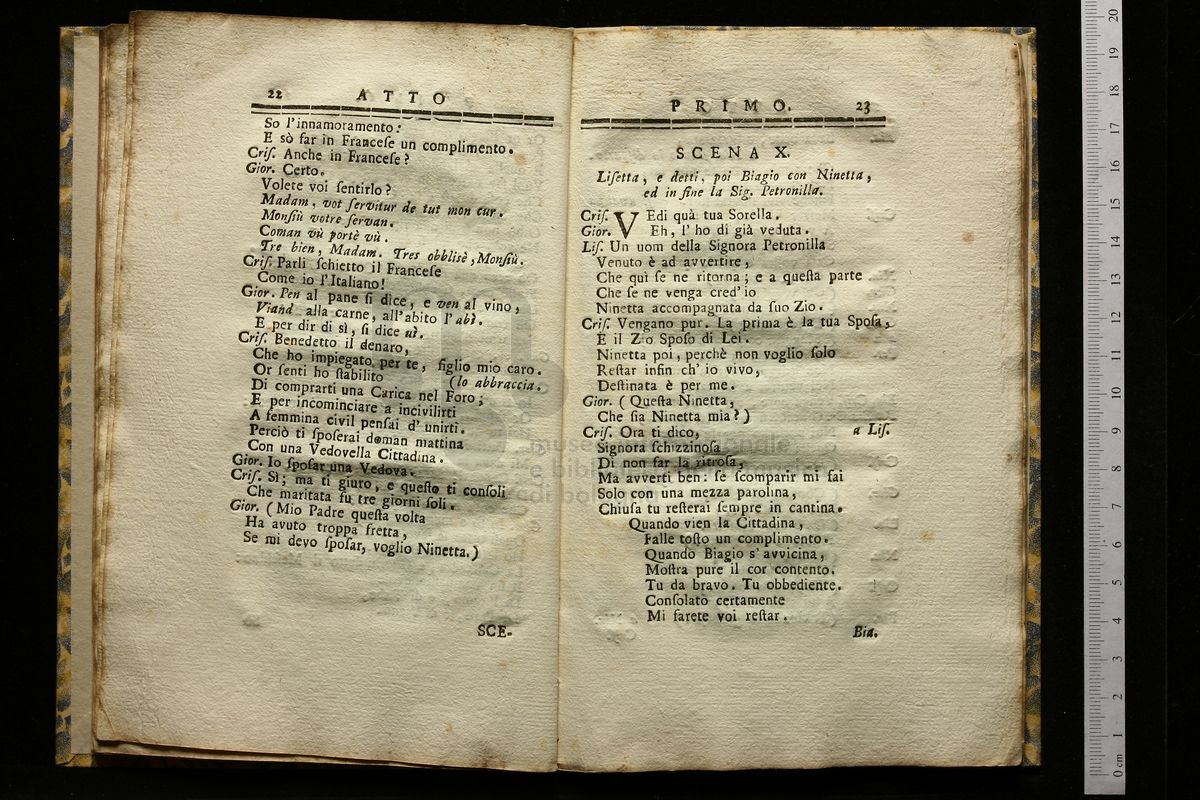 22 ATTO
So l'innamoramento:
E sò far in Franceſe un complimento.
Criſ. Anche in Franceſe?
Gior. Certo.
Volete voi ſentirlo?
Madam, vot ſervitur de tut mon cur.
Monſiù votre ſervan.
Coman vù portè vù.
Tre bien, Madam. Tres obblisè, Monſiù.
Criſ. Parli ſchietto il Franceſe
Come io l'Italiano!
Gior. Pen al pane ſi dice, e ven al vino,
Viand alla carne, all'abito l'abì.
E per dir di sì, ſi dice uì.
Criſ. Benedetto il denaro,
Che ho impiegato per te, figlio mio caro.
Or ſenti ho ſtabilito (lo abbraccia.
Di comprarti una Carica nel Foro;
E per incominciare a incivilirti
A femmina civil penſai d'unirti.
Perciò ti ſpoſerai doman mattina
Con una Vedovella Cittadina.
Gior. Io ſpoſar una Vedova.
Criſ. Sì; ma ti giuro, e queſto ti conſoli
Che maritata fu tre giorni ſoli.
Gior. (Mio Padre queſta volta
Ha avuto troppa fretta,
Se mi devo ſpoſar, voglio Ninetta.)
SCE-
PRIMO. 23
SCENA X.
Liſetta, e detti, poi Biagio con Ninetta,
ed in fine la Sig. Petronilla.
Criſ. VEdi quà tua Sorella.
Gior. Eh, l'ho di già veduta.
Liſ. Un uom della Signora Petronilla
Venuto è ad avvertire,
Che quì ſe ne ritorna; e a queſta parte
Che ſe ne venga cred'io
Ninetta accompagnata da ſuo Zio.
Criſ. Vengano pur. La prima è la tua Spoſa,
E il Zio Spoſo di Lei.
Ninetta poi, perchè non voglio ſolo
Reſtar infin ch'io vivo,
Deſtinata è per me.
Gior. (Queſta Ninetta,
Che ſia Ninetta mia?)
Criſ. Ora ti dico, a Liſ.
Signora ſchizzinoſa
Di non far la ritroſa,
Ma avverti ben: ſe ſcomparir mi fai
Solo con una mezza parolina,
Chiuſa tu reſterai ſempre in cantina.
Quando vien la Cittadina,
Falle toſto un complimento.
Quando Biagio s'avvicina,
Moſtra pure il cor contento.
Tu da bravo. Tu obbediente.
Conſolatò certamente
Mi farete voi reſtar.
Bia.